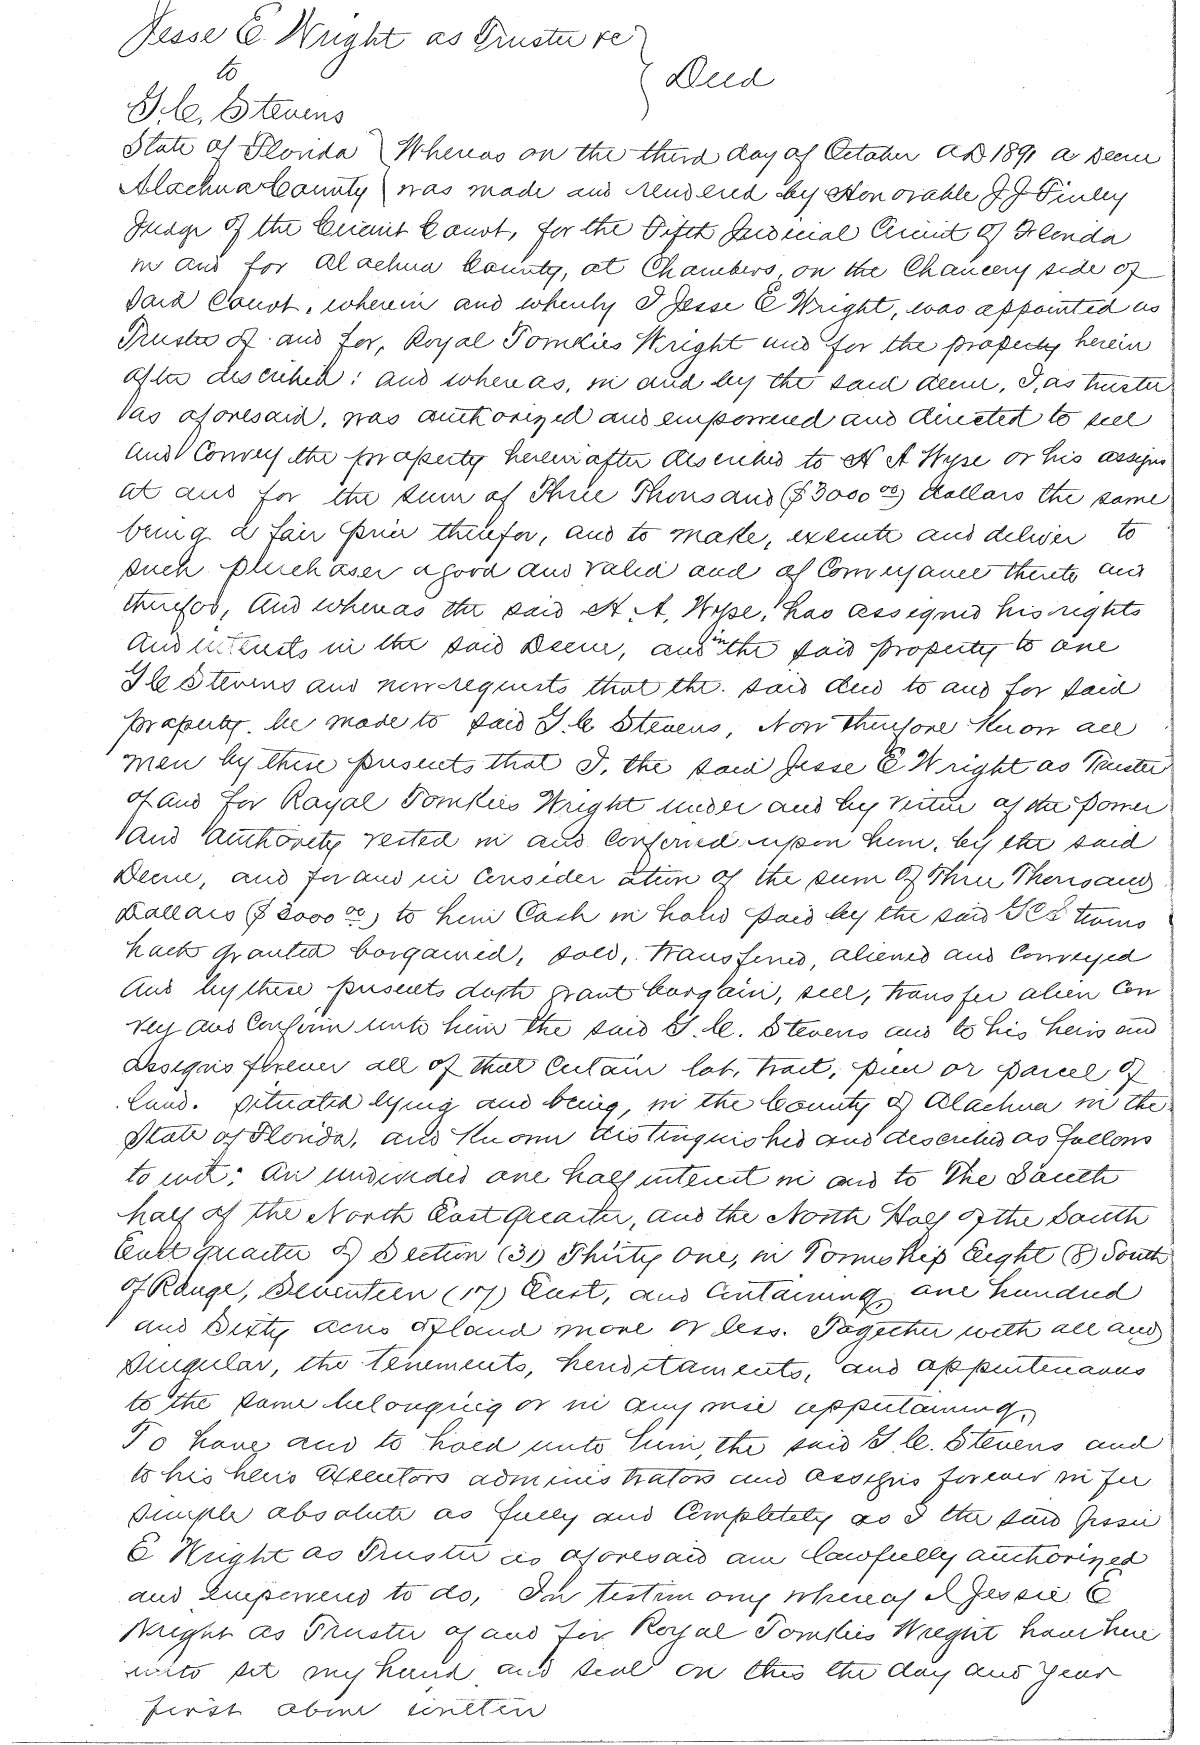 Jesse E Wright as Trustee re
to
Deed
G. C. Stevens
State of Florida } Whereas on the third day of October AD 1891 a Decree
Alachua County } was made and rendered by Honorable J J Finley
Judge of the Circuit Court, for the Fifth Judicial Circuit of Florida
in and for Alachua County, at Chambers, on the Chancery side of
said Court, wherein and whereby I Jesse E Wright, was appointed as
Trustee of and for, Royal Tomkies Wright and for the property herein
after described: and whereas, in and by the said decree, I, as trustee
as aforesaid, was authorized and empowered and directed to sell
and Convey the property hereinafter described to H A Wyse or his assigns
at and for the sum of Three Thousand ($3000 00) dollars the same
being a fair price therefor, and to make, execute and deliver to
such purchaser a good and valid and of Conveyance thereto and
therefor, And whereas the said H. A. Wyse, has assigned his rights
and interests in the said Decree, and in the said property to one
G C Stevens and now requests that the said deed to and for said
property be made to said G. C Stevens, Now therefore Know all
men by these presents that I, the said Jesse E Wright as Trustee
of and for Royal Tomkies Wright under and by virtue of the power
and authority vested in and conferred upon him, by the said
Decree, and for and in Consideration of the sum of Three Thousand
Dollars ($3000 00) to him Cash in hand paid by the said G C Stevens
hath granted bargained, sold, transferred, aliened and Conveyed
And by these presents doth grant bargain, sell, transfer alien Con
vey and Confirm unto him the said G. C. Stevens and to his heirs and
assigns forever all of that Certain lot, tract, piece or parcel of
land. situated lying and being, in the County of Alachua in the
State of Florida, and Known distinguished and described as follows
to wit: An undivided one half interest in and to The South
half of the North East Quarter, and the North Half of the South
East quarter of Section (31) Thirty One, in Township Eight (8) South
of Range, Seventeen (17) East, and Containing, one hundred
and Sixty acres of land more or less. Together with all and
Singular, the tenements, hereditaments, and appurtenances
to the same belonging or in any wise appertaining.
To have and to hold unto him, the said G. C. Stevens and
to his heirs Executors administrators and assigns forever in fee
simple absolute as fully and Completely as I the said Jessie
E Wright as Trustee as aforesaid am lawfully authorized
and empowered to do, In testimony whereof I Jessie E
Wright as Trustee of and for Royal Tomkies Wright have here
unto set my hand and seal on this the day and year
first above written